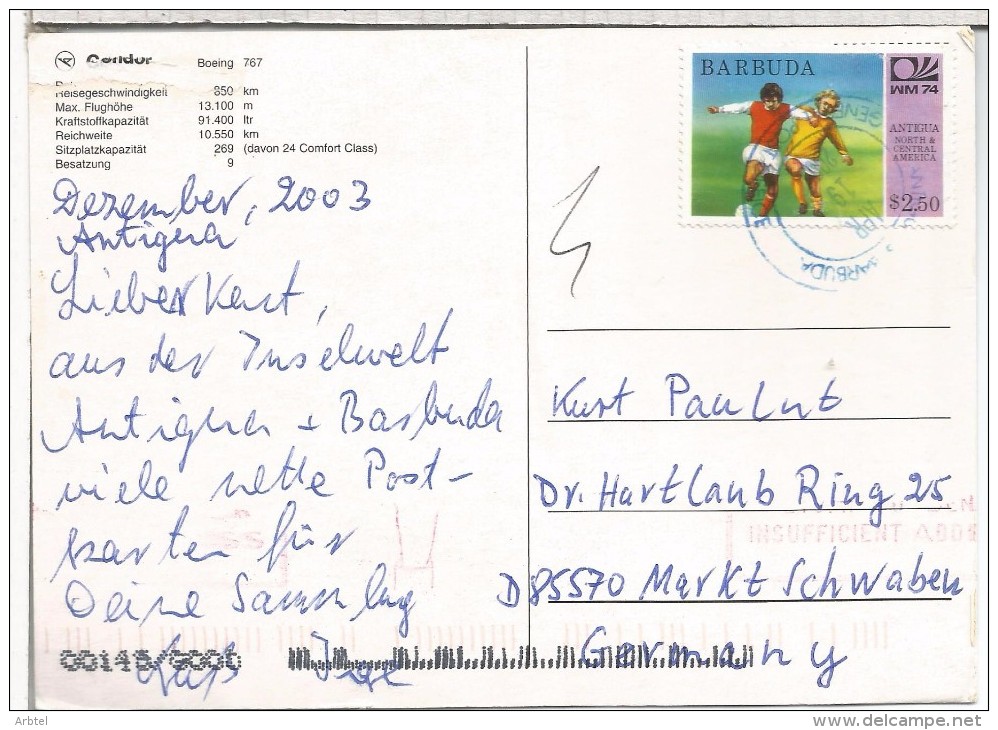 Condor Boeing 767
Reisegeschwindigkeit 850 km
Max. Flughöhe 13.100 m
Kraftstoffkapazität 91.400 ltr
Reichweite 10.550 km
Sitzplatzkapazität 269 (davon 24 Comfort Class)
Besatzung 9
Dezember, 2003
Antigua
Lieber Kurt,
aus der Inselwelt
Antigua + Barbuda
viele nette Post-
karten für
Deine Sammlung
Gruß
BARBUDA
WM 74
ANTIGUA
NORTH &
CENTRAL
AMERICA
$2.50
BARBUDA
Kurt Paulut
Dr. Hartlaub Ring 25
INSUFFICIENT
D 85570 Markt Schwaben
Germany
Arbtel
delcampe.net